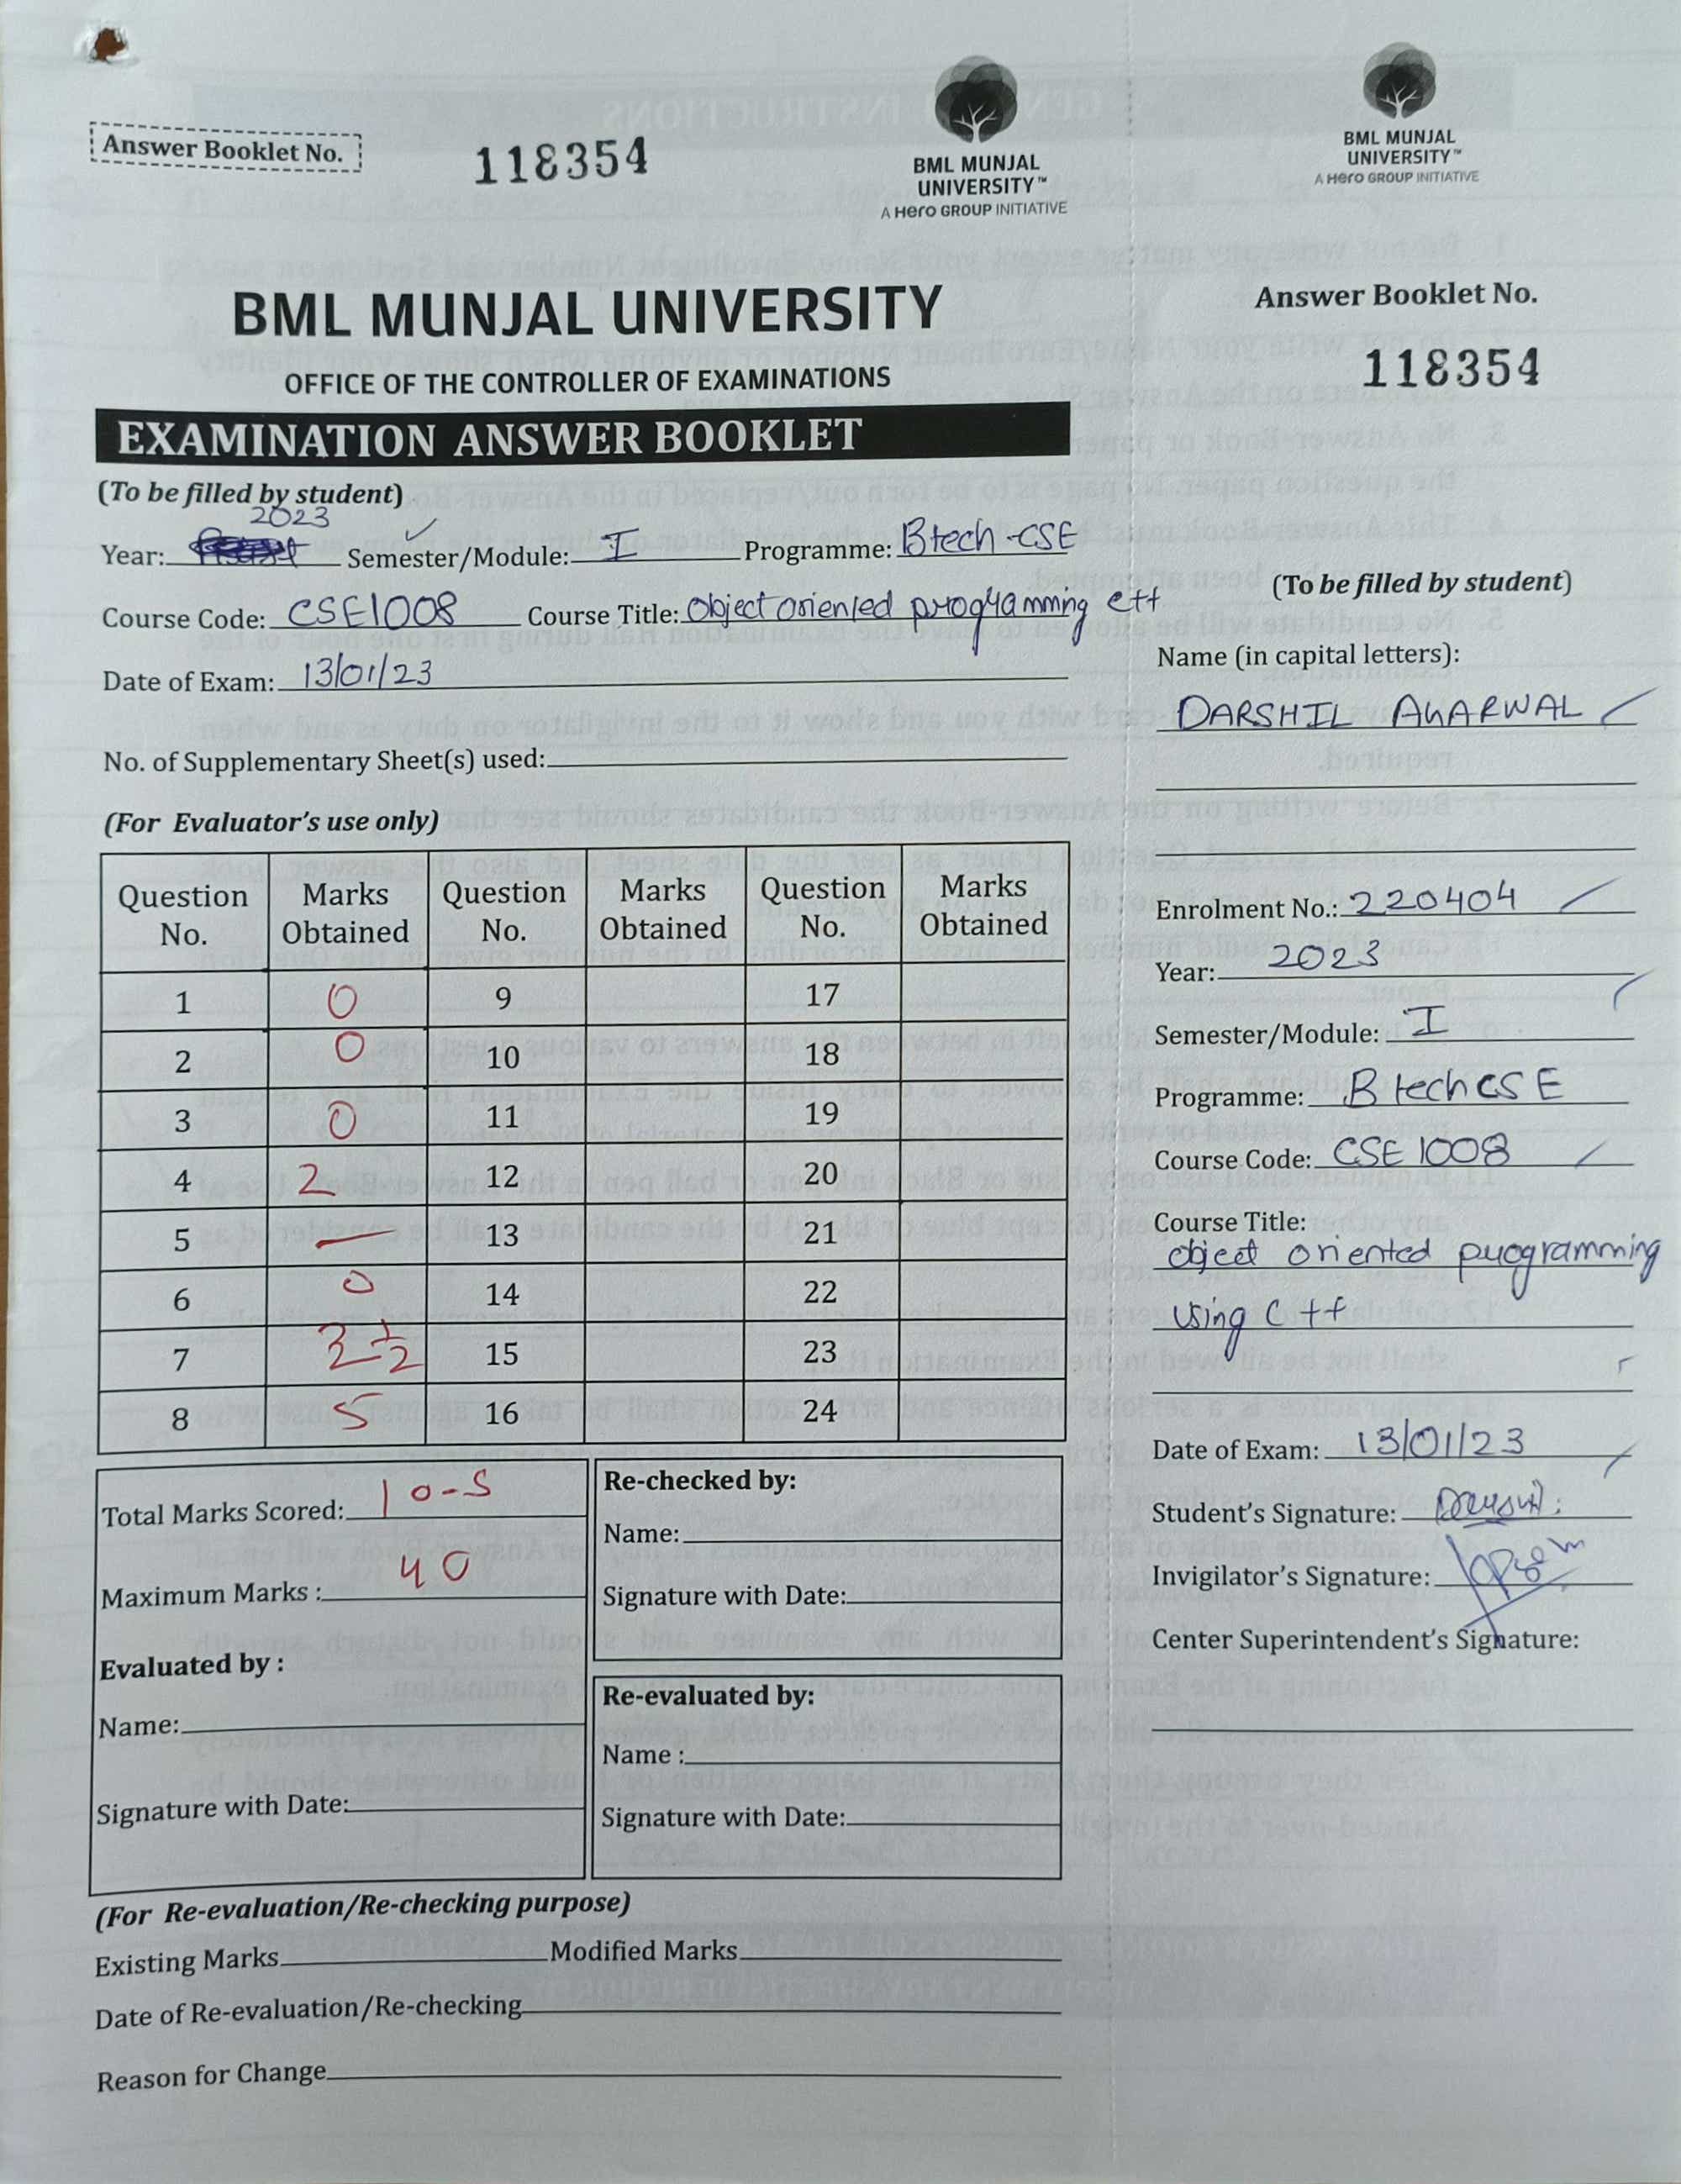 Answer Booklet No.
118354
BML MUNJAL
UNIVERSITY™
A Hero GROUP INITIATIVE
BML MUNJAL UNIVERSITY
OFFICE OF THE CONTROLLER OF EXAMINATIONS
EXAMINATION ANSWER BOOKLET
(To be filled by student)
2023
Year: Semester/Module: I Programme: Btech-CSE
Course Code: CSE1008 Course Title: Object oriented programming C++
Date of Exam: 13/01/23
No. of Supplementary Sheet(s) used:
(For Evaluator's use only)
Question No. Marks Obtained Question No. Marks Obtained Question No. Marks Obtained
1 0 9 17
2 0 10 18
3 0 11 19
4 2 12 20
5 — 13 21
6 0 14 22
7 3 1/2 15 23
8 5 16 24
Total Marks Scored: 10-5
Maximum Marks : 40
Evaluated by :
Name:
Signature with Date:
Re-checked by:
Name:
Signature with Date:
Re-evaluated by:
Name :
Signature with Date:
(For Re-evaluation/Re-checking purpose)
Existing Marks Modified Marks
Date of Re-evaluation/Re-checking
Reason for Change
BML MUNJAL
UNIVERSITY™
A Hero GROUP INITIATIVE
Answer Booklet No.
118354
(To be filled by student)
Name (in capital letters):
DARSHIL AGARWAL
Enrolment No.: 220404
Year: 2023
Semester/Module: I
Programme: B tech CSE
Course Code: CSE 1008
Course Title:
object oriented programming
using C++
Date of Exam: 13/01/23
Student's Signature: Darshil
Invigilator's Signature:
Center Superintendent's Signature: